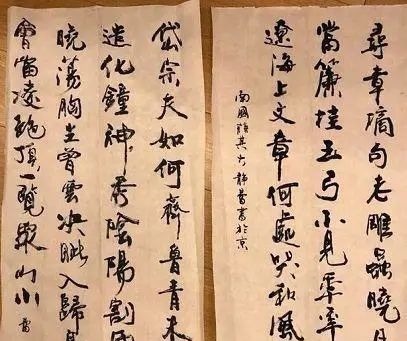 尋章摘句老雕蟲曉月
當簾挂玉弓不見年年
遼海上文章何處哭秋風
南園
岱宗夫如何齊魯青未
造化鐘神秀陰陽割昏
曉蕩胸生曾雲決眦入歸
會當凌絕頂一覽眾山小